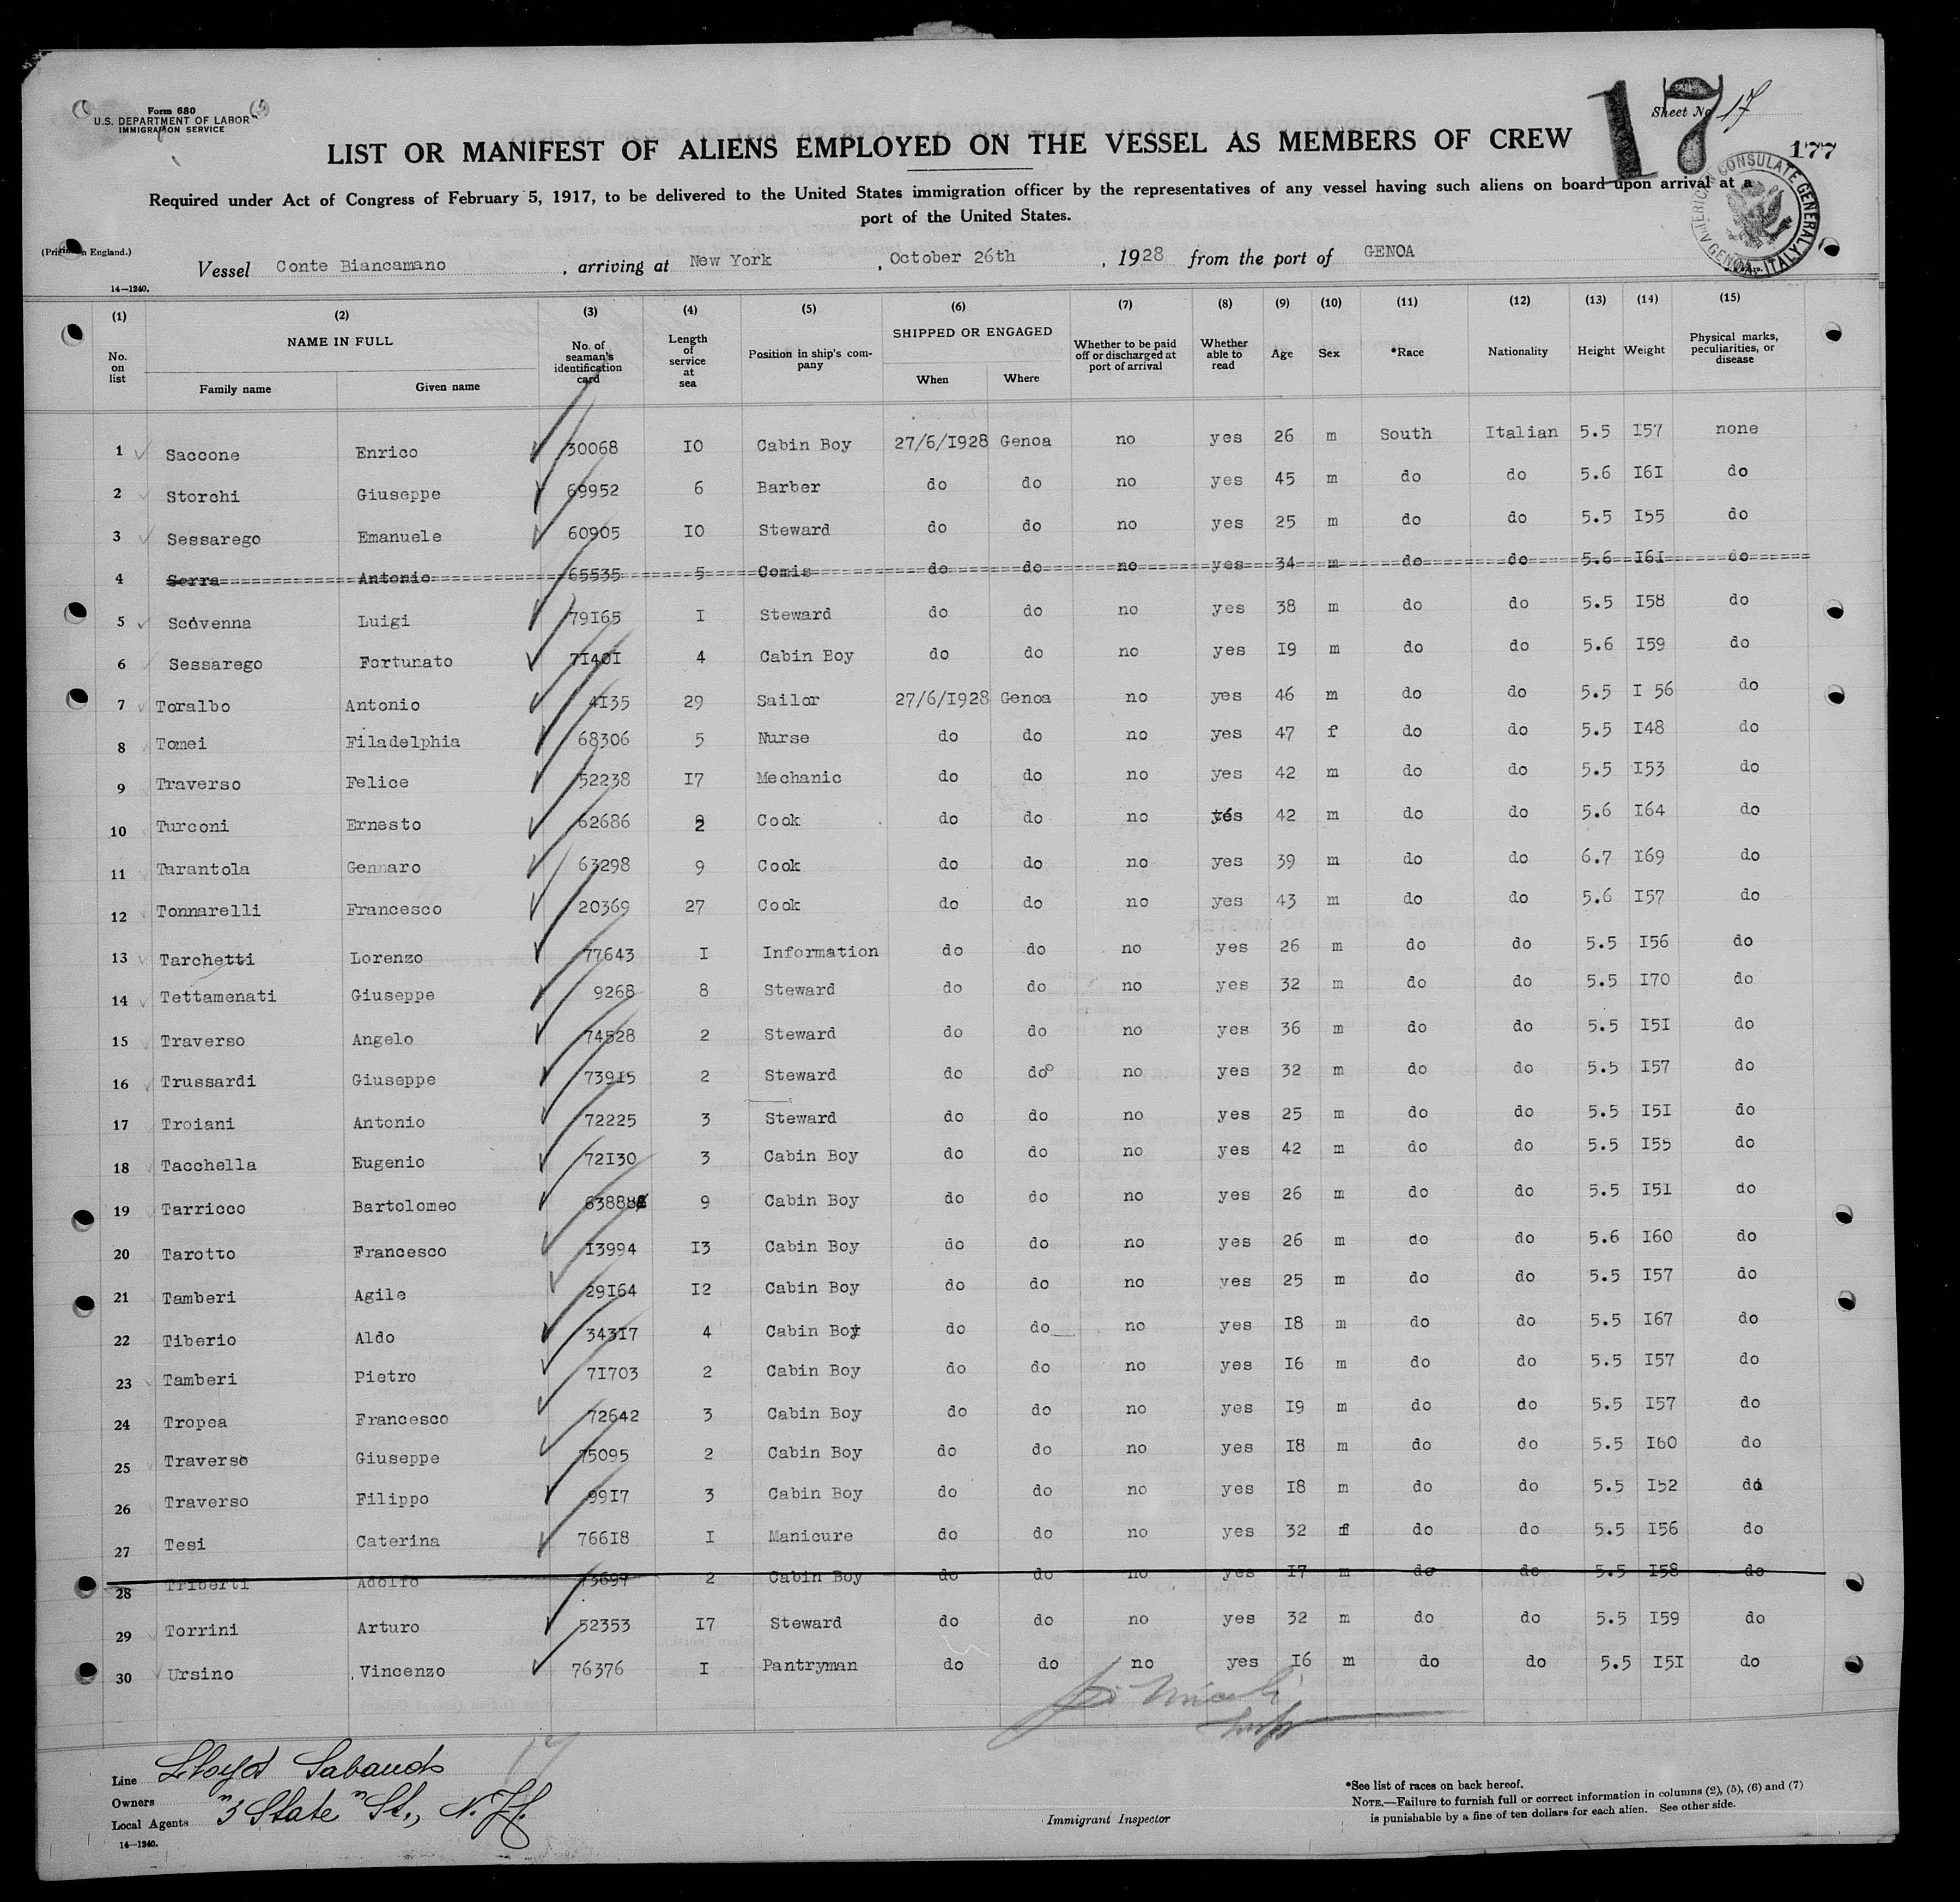 Form 680
U.S. DEPARTMENT OF LABOR
IMMIGRATION SERVICE
Sheet No. 17
17
177
LIST OR MANIFEST OF ALIENS EMPLOYED ON THE VESSEL AS MEMBERS OF CREW
Required under Act of Congress of February 5, 1917, to be delivered to the United States immigration officer by the representatives of any vessel having such aliens on board upon arrival at a
port of the United States.
AMERICAN CONSULATE GENERAL GENOA, ITALY
Vessel Conte Biancamano, arriving at New York, October 26th, 1928 from the port of GENOA
14—1240.
(1) (2) (3) (4) (5) (6) (7) (8) (9) (10) (11) (12) (13) (14) (15)
No. on list NAME IN FULL Family name Given name No. of seaman's identification card Length of service at sea Position in ship's company SHIPPED OR ENGAGED When Where Whether to be paid off or discharged at port of arrival Whether able to read Age Sex *Race Nationality Height Weight Physical marks, peculiarities, or disease
1 Saccone Enrico 30068 I0 Cabin Boy 27/6/I928 Genoa no yes 26 m South Italian 5.5 I57 none
2 Storchi Giuseppe 69952 6 Barber do do no yes 45 m do do 5.6 I6I do
3 Sessarego Emanuele 60905 I0 Steward do do no yes 25 m do do 5.5 I55 do
4 Serra Antonio 65535 5 Comis do do no yes 34 m do do 5.6 I6I do
5 Scovenna Luigi 79I65 I Steward do do no yes 38 m do do 5.5 I58 do
6 Sessarego Fortunato 7I40I 4 Cabin Boy do do no yes I9 m do do 5.6 I59 do
7 Toralbo Antonio 4I35 29 Sailor 27/6/I928 Genoa no yes 46 m do do 5.5 I 56 do
8 Tomei Filadelphia 68306 5 Nurse do do no yes 47 f do do 5.5 I48 do
9 Traverso Felice 52238 I7 Mechanic do do no yes 42 m do do 5.5 I53 do
10 Turconi Ernesto 62686 2 Cook do do no yes 42 m do do 5.6 I64 do
11 Tarantola Gennaro 63298 9 Cook do do no yes 39 m do do 6.7 I69 do
12 Tonnarelli Francesco 20369 27 Cook do do no yes 43 m do do 5.6 I57 do
13 Tarchetti Lorenzo 77643 I Information do do no yes 26 m do do 5.5 I56 do
14 Tettamenati Giuseppe 9268 8 Steward do do no yes 32 m do do 5.5 I70 do
15 Traverso Angelo 74528 2 Steward do do no yes 36 m do do 5.5 I5I do
16 Trussardi Giuseppe 739I5 2 Steward do do no yes 32 m do do 5.5 I57 do
17 Troiani Antonio 72225 3 Steward do do no yes 25 m do do 5.5 I5I do
18 Tacchella Eugenio 72I30 3 Cabin Boy do do no yes 42 m do do 5.5 I55 do
19 Tarricco Bartolomeo 63888 9 Cabin Boy do do no yes 26 m do do 5.5 I5I do
20 Tarotto Francesco I3994 I3 Cabin Boy do do no yes 26 m do do 5.6 I60 do
21 Tamberi Agile 29I64 I2 Cabin Boy do do no yes 25 m do do 5.5 I57 do
22 Tiberio Aldo 343I7 4 Cabin Boy do do no yes I8 m do do 5.5 I67 do
23 Tamberi Pietro 7I703 2 Cabin Boy do do no yes I6 m do do 5.5 I57 do
24 Tropea Francesco 72642 3 Cabin Boy do do no yes I9 m do do 5.5 I57 do
25 Traverso Giuseppe 75095 2 Cabin Boy do do no yes I8 m do do 5.5 I60 do
26 Traverso Filippo 99I7 3 Cabin Boy do do no yes I8 m do do 5.5 I52 do
27 Tesi Caterina 766I8 I Manicure do do no yes 32 f do do 5.5 I56 do
28 Triberti Adolfo 73697 2 Cabin Boy do do no yes I7 m do do 5.5 I58 do
29 Torrini Arturo 52353 I7 Steward do do no yes 32 m do do 5.5 I59 do
30 Ursino Vincenzo 76376 I Pantryman do do no yes I6 m do do 5.5 I5I do
Line Lloyd Sabaudo
Owners
Local Agents "3 State" St., N.Y.
14—1240.
Immigrant Inspector
*See list of races on back hereof.
NOTE.—Failure to furnish full or correct information in columns (2), (5), (6) and (7)
is punishable by a fine of ten dollars for each alien. See other side.